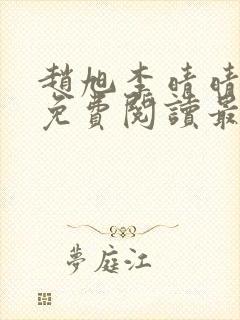 趙旭李晴晴
免費閱讀最
夢庭江